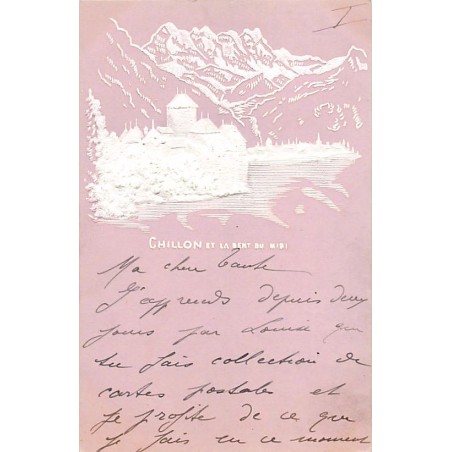 I
CHILLON ET LA DENT DU MIDI
Ma chère tante
J'apprends depuis deux
jours par Louise que
tu fais collection de
cartes postales et
je profite de ce que
je fais en ce moment